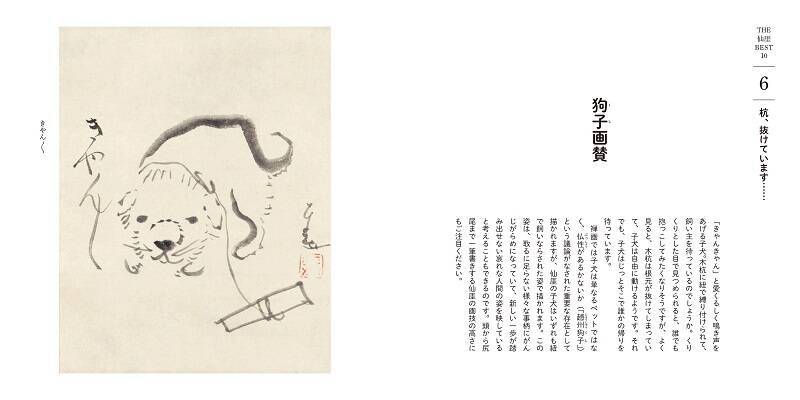 THE
仙厓
BEST
10
6
杭、抜けています……
狗子画賛
「きゃんきゃん」と愛くるしく鳴き声を
あげる子犬。木杭に紐で縛り付けられて、
飼い主を待っているのでしょうか。くり
くりとした目で見つめられると、誰でも
抱っこしてみたくなりそうですが、よく
見ると、木杭は根元が抜けてしまってい
て、子犬は自由に動けるようです。それ
でも、子犬はじっとそこで誰かの帰りを
待っています。
禅画では子犬は単なるペットではな
く、仏性があるかないか(「趙州狗子」)
という議論がなされた重要な存在として
描かれますが、仙厓の子犬はいずれも紐
で飼いならされた姿で描かれます。この
姿は、取るに足らない様々な事柄にがん
じがらめになっていて、新しい一歩が踏
み出せない哀れな人間の姿を映している
と考えることもできるのです。頭から尻
尾まで一筆書きする仙厓の画技の高さに
もご注目ください。
きゃん〱
きやん〱